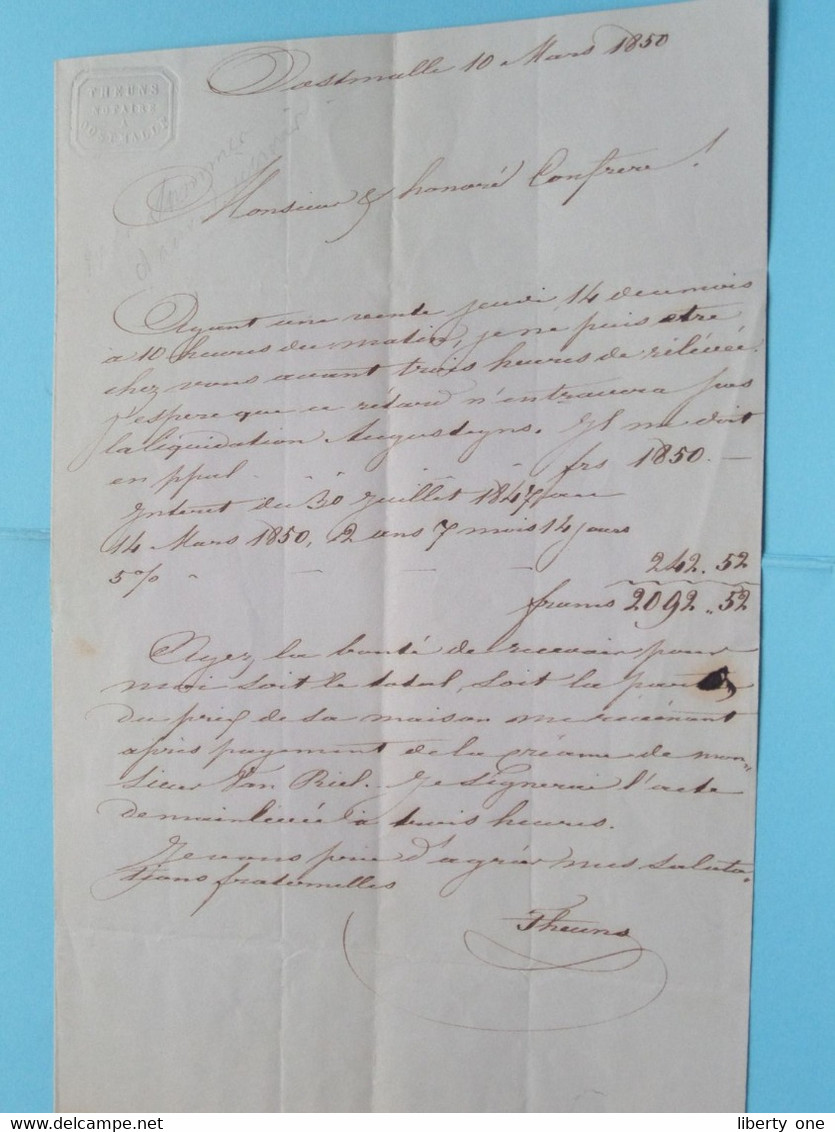 THEUNS
NOTAIRE
A
OOSTMALLE
Oostmalle 10 Mars 1850
Monsieur & honoré Confrere!
Ayant une vente jeudi 14 de ce mois
à 10 heures du matin, je ne puis etre
chez vous avant trois heures de rélévée.
J'espere que ce rétard n'entravera pas
la liquidation Augusteyns. Il me doit
en ppal - - - frs 1850. —
Interet du 30 Juillet 1847 au
14 Mars 1850, 2 ans 7 mois 14 jours
5% - - - 242.52
francs 2092.52
Ayez la bonté de recevoir pour
moi soit le total, soit la partie
du prix de sa maison me révénant
après payement de la créance de mon=
sieur Van Riel. Je signerai l'acte
de mainlévée à trois heures.
Je vous prie d'agréer mes saluta-
tions fraternelles
Theuns
liberty one